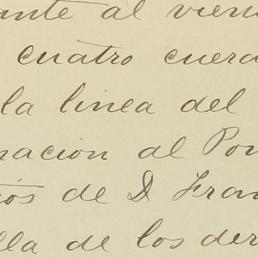 ante al vien
cuatro cuerd
la linea del
nacion al Pon
os de D Fran
lla de los der